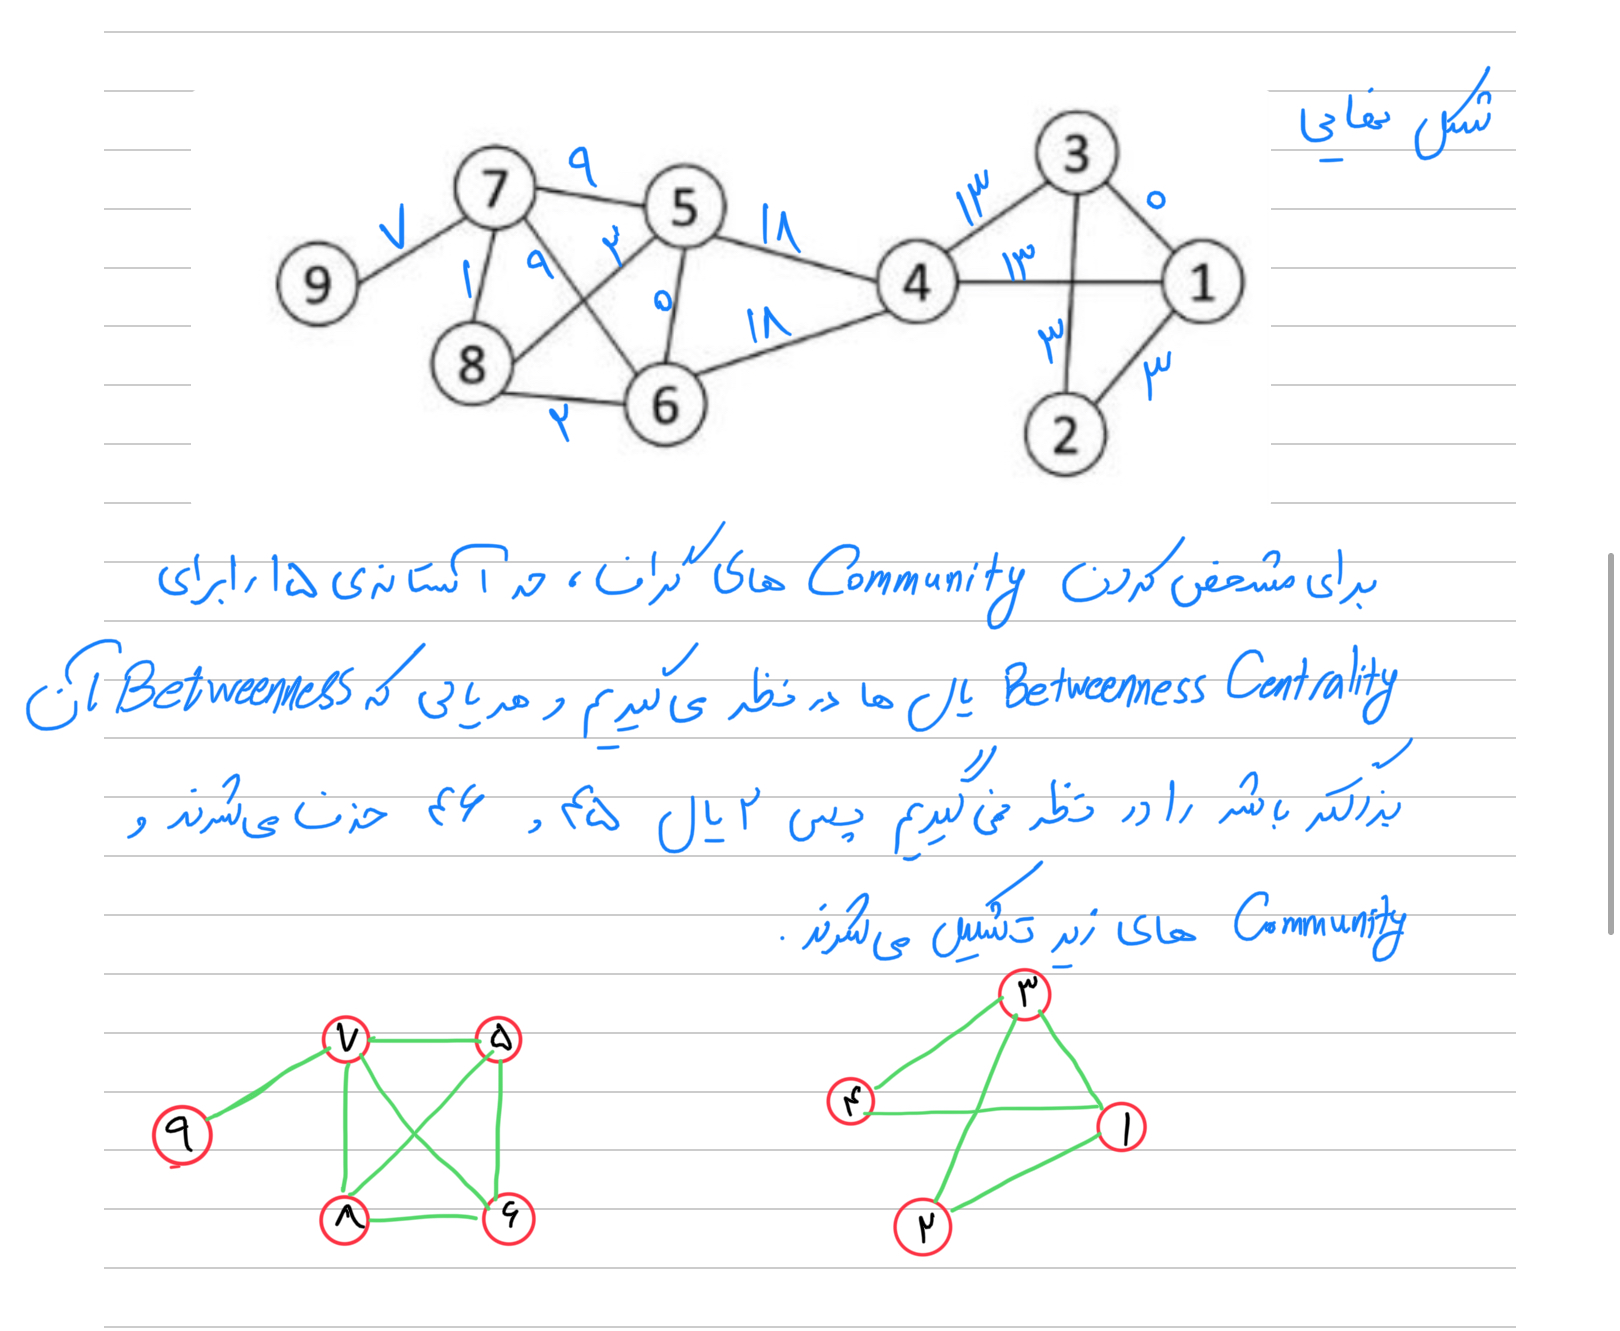 شکل نهایی
3
7
9
5
18
13
0
7
9
1
9
3
13
4
1
0
18
8
3
3
2
6
2
برای مشخص کردن Community های گراف، حد آستانه‌ی ۱۵ را برای
Betweenness Centrality یال ها در نظر می‌گیریم و هر یالی که Betweenness آن
بزرگتر باشد را در نظر نمی‌گیریم پس ۲ یال ۴۵ و ۴۶ حذف می‌شوند و
Community های زیر تشکیل می‌شوند.
۳
۷ ۵
۴ ۱
۹
۸ ۶ ۲